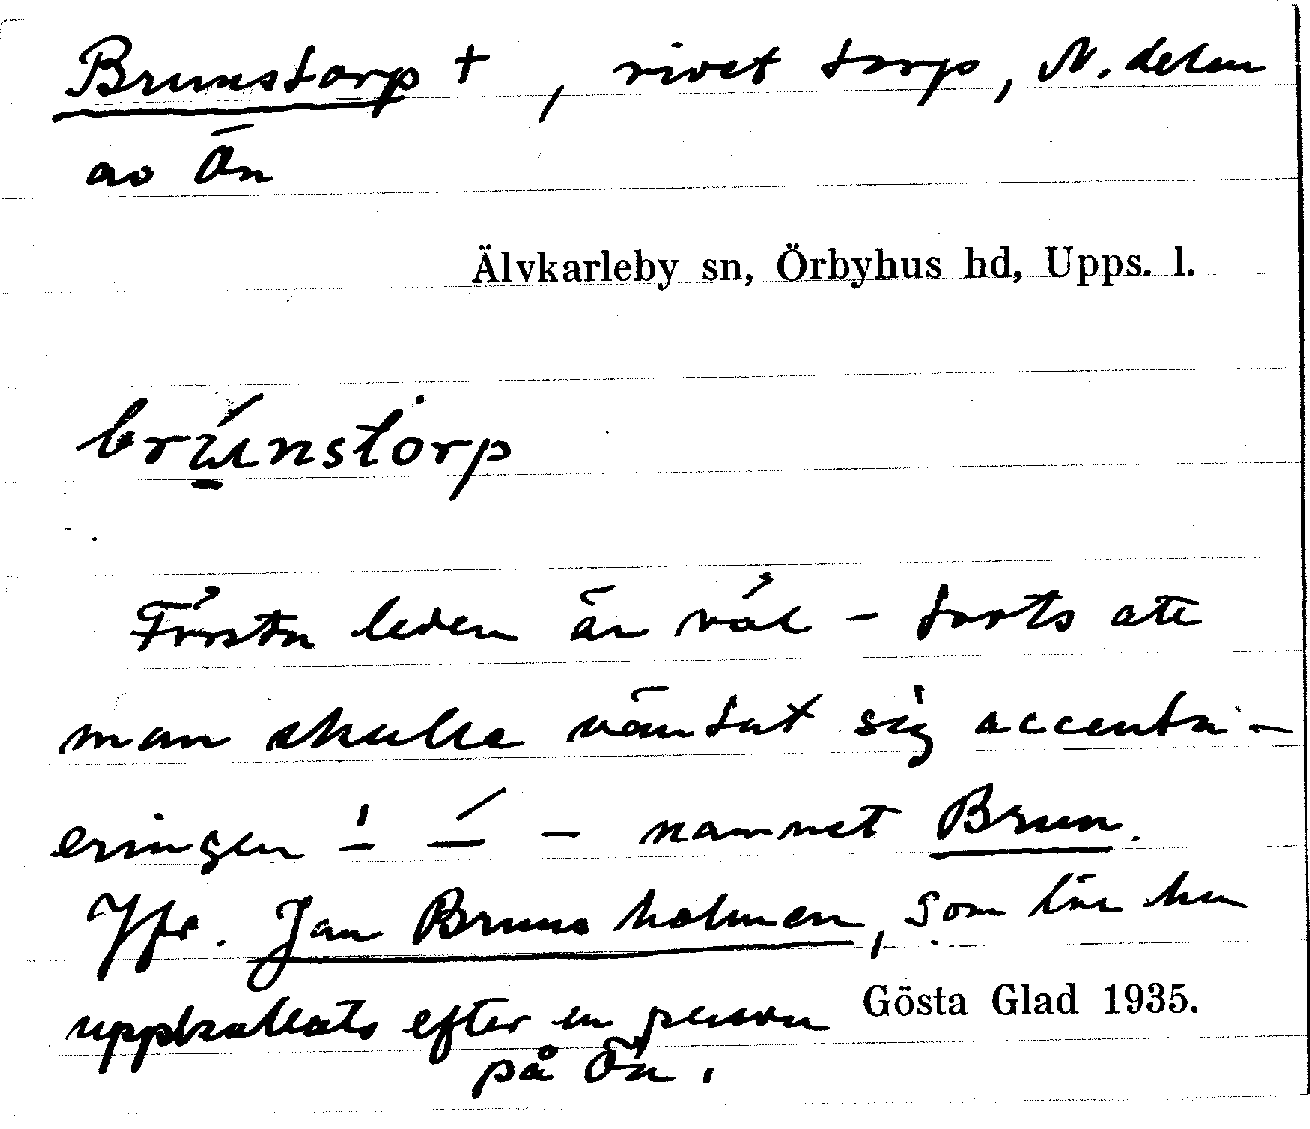 Brunstorp +, rivet torp, N. delen
av Ön
Älvkarleby sn, Örbyhus hd, Upps. l.
brúnstorp
Första leden är väl – trots att
man skulle väntat sig accentu-
eringen – namnet Brun.
Jfr. Jan Bruns holmen, som lär ha
uppkallats efter en person
på Ön.
Gösta Glad 1935.